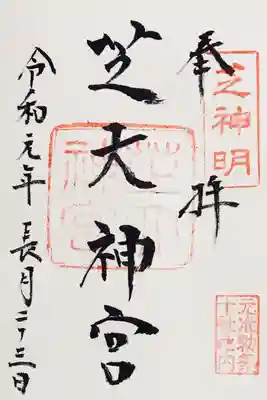 奉拝
芝神明
元准勅祭
十社之内
芝大神宮
令和元年 長月二十三日